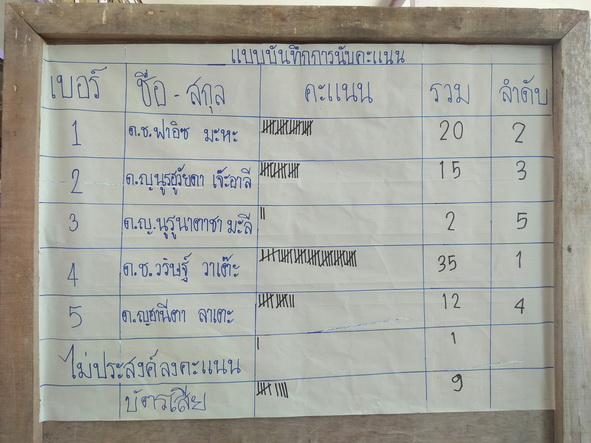 แบบบันทึกการนับคะแนน
เบอร์ ชื่อ - สกุล คะแนน รวม ลำดับ
1 ด.ช.ฟาอิซ มะหะ 20 2
2 ด.ญ.นูรฮูรัยดา เจ๊ะอาลี 15 3
3 ด.ญ.นุรูนาตาชา มะลี 2 5
4 ด.ช.วริษฐ์ วาเต๊ะ 35 1
5 ด.ญ.ฮานีตา ลาเตะ 12 4
ไม่ประสงค์ลงคะแนน 1
บัตรเสีย 9